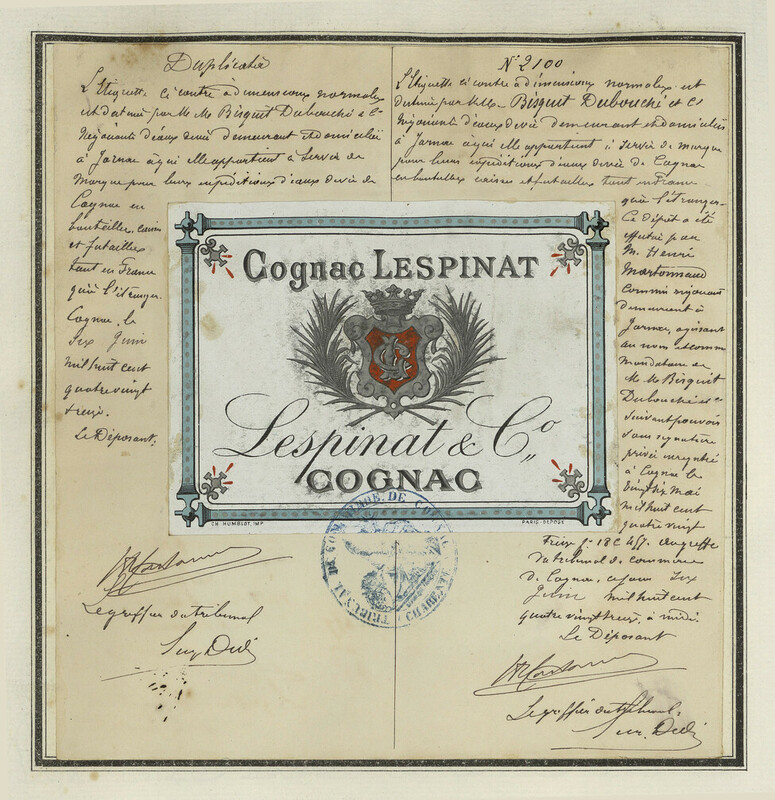 Duplicata
L'Etiquette ci contre à dimensions normales
est destinée par M.M. Bisquit Dubouché & Cie
Négociants d'eaux de vie demeurant et domiciliés
à Jarnac à qui elle appartient à servir de
Marque pour leurs expéditions d'eaux de vie de
Cognac en
bouteilles, caisses
et futailles
tant en France
qu'à l'étranger.
Cognac, le
Six Juin
mil huit cent
quatre vingt
treize.
Le Déposant:
Le greffier du tribunal
N° 2100
L'Etiquette ci contre à dimensions normales est
destinée par M.M. Bisquit Dubouché et Cie
Négociants d'eaux de vie demeurant et domiciliés
à Jarnac à qui elle appartient à servir de marque
pour leurs expéditions d'eaux de vie de Cognac
en bouteilles caisses et futailles tant en France
qu'à l'étranger
Ce dépôt a été
effectué par
M. Henri
commis négociant
demeurant à
Jarnac, agissant
au nom et comme
mandataire de
M.M. Bisquit
Dubouché et Cie
suivant pouvoir
sous signature
privée enregistré
à Cognac le
vingt six Mai
mil huit cent
quatre vingt
treize f° 18 C 457. au greffe
du tribunal de commerce
de Cognac, ce jour Six
Juin mil huit cent
quatre vingt treize, à midi.
Le Déposant
Le greffier du tribunal
Cognac LESPINAT
Lespinat & Co
COGNAC
CH. HUMBLOT, IMP.
PARIS-DÉPOSÉ
TRIBUNAL DE COMMERCE DE COGNAC
CHARENTE